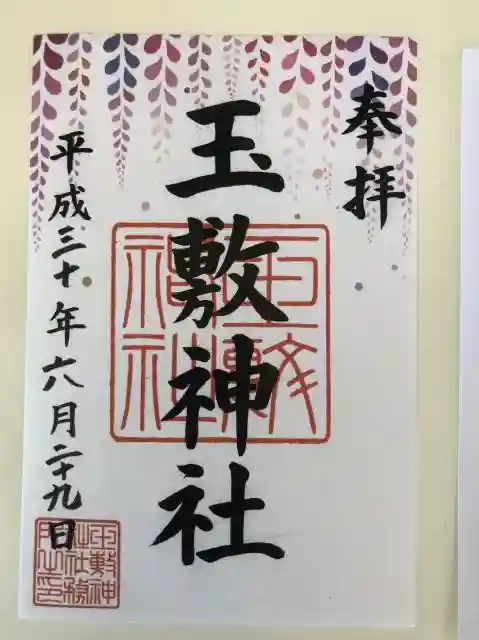 奉拝
玉敷神社
平成三十年六月二十九日
玉敷神社
玉敷神
社社務
所之印